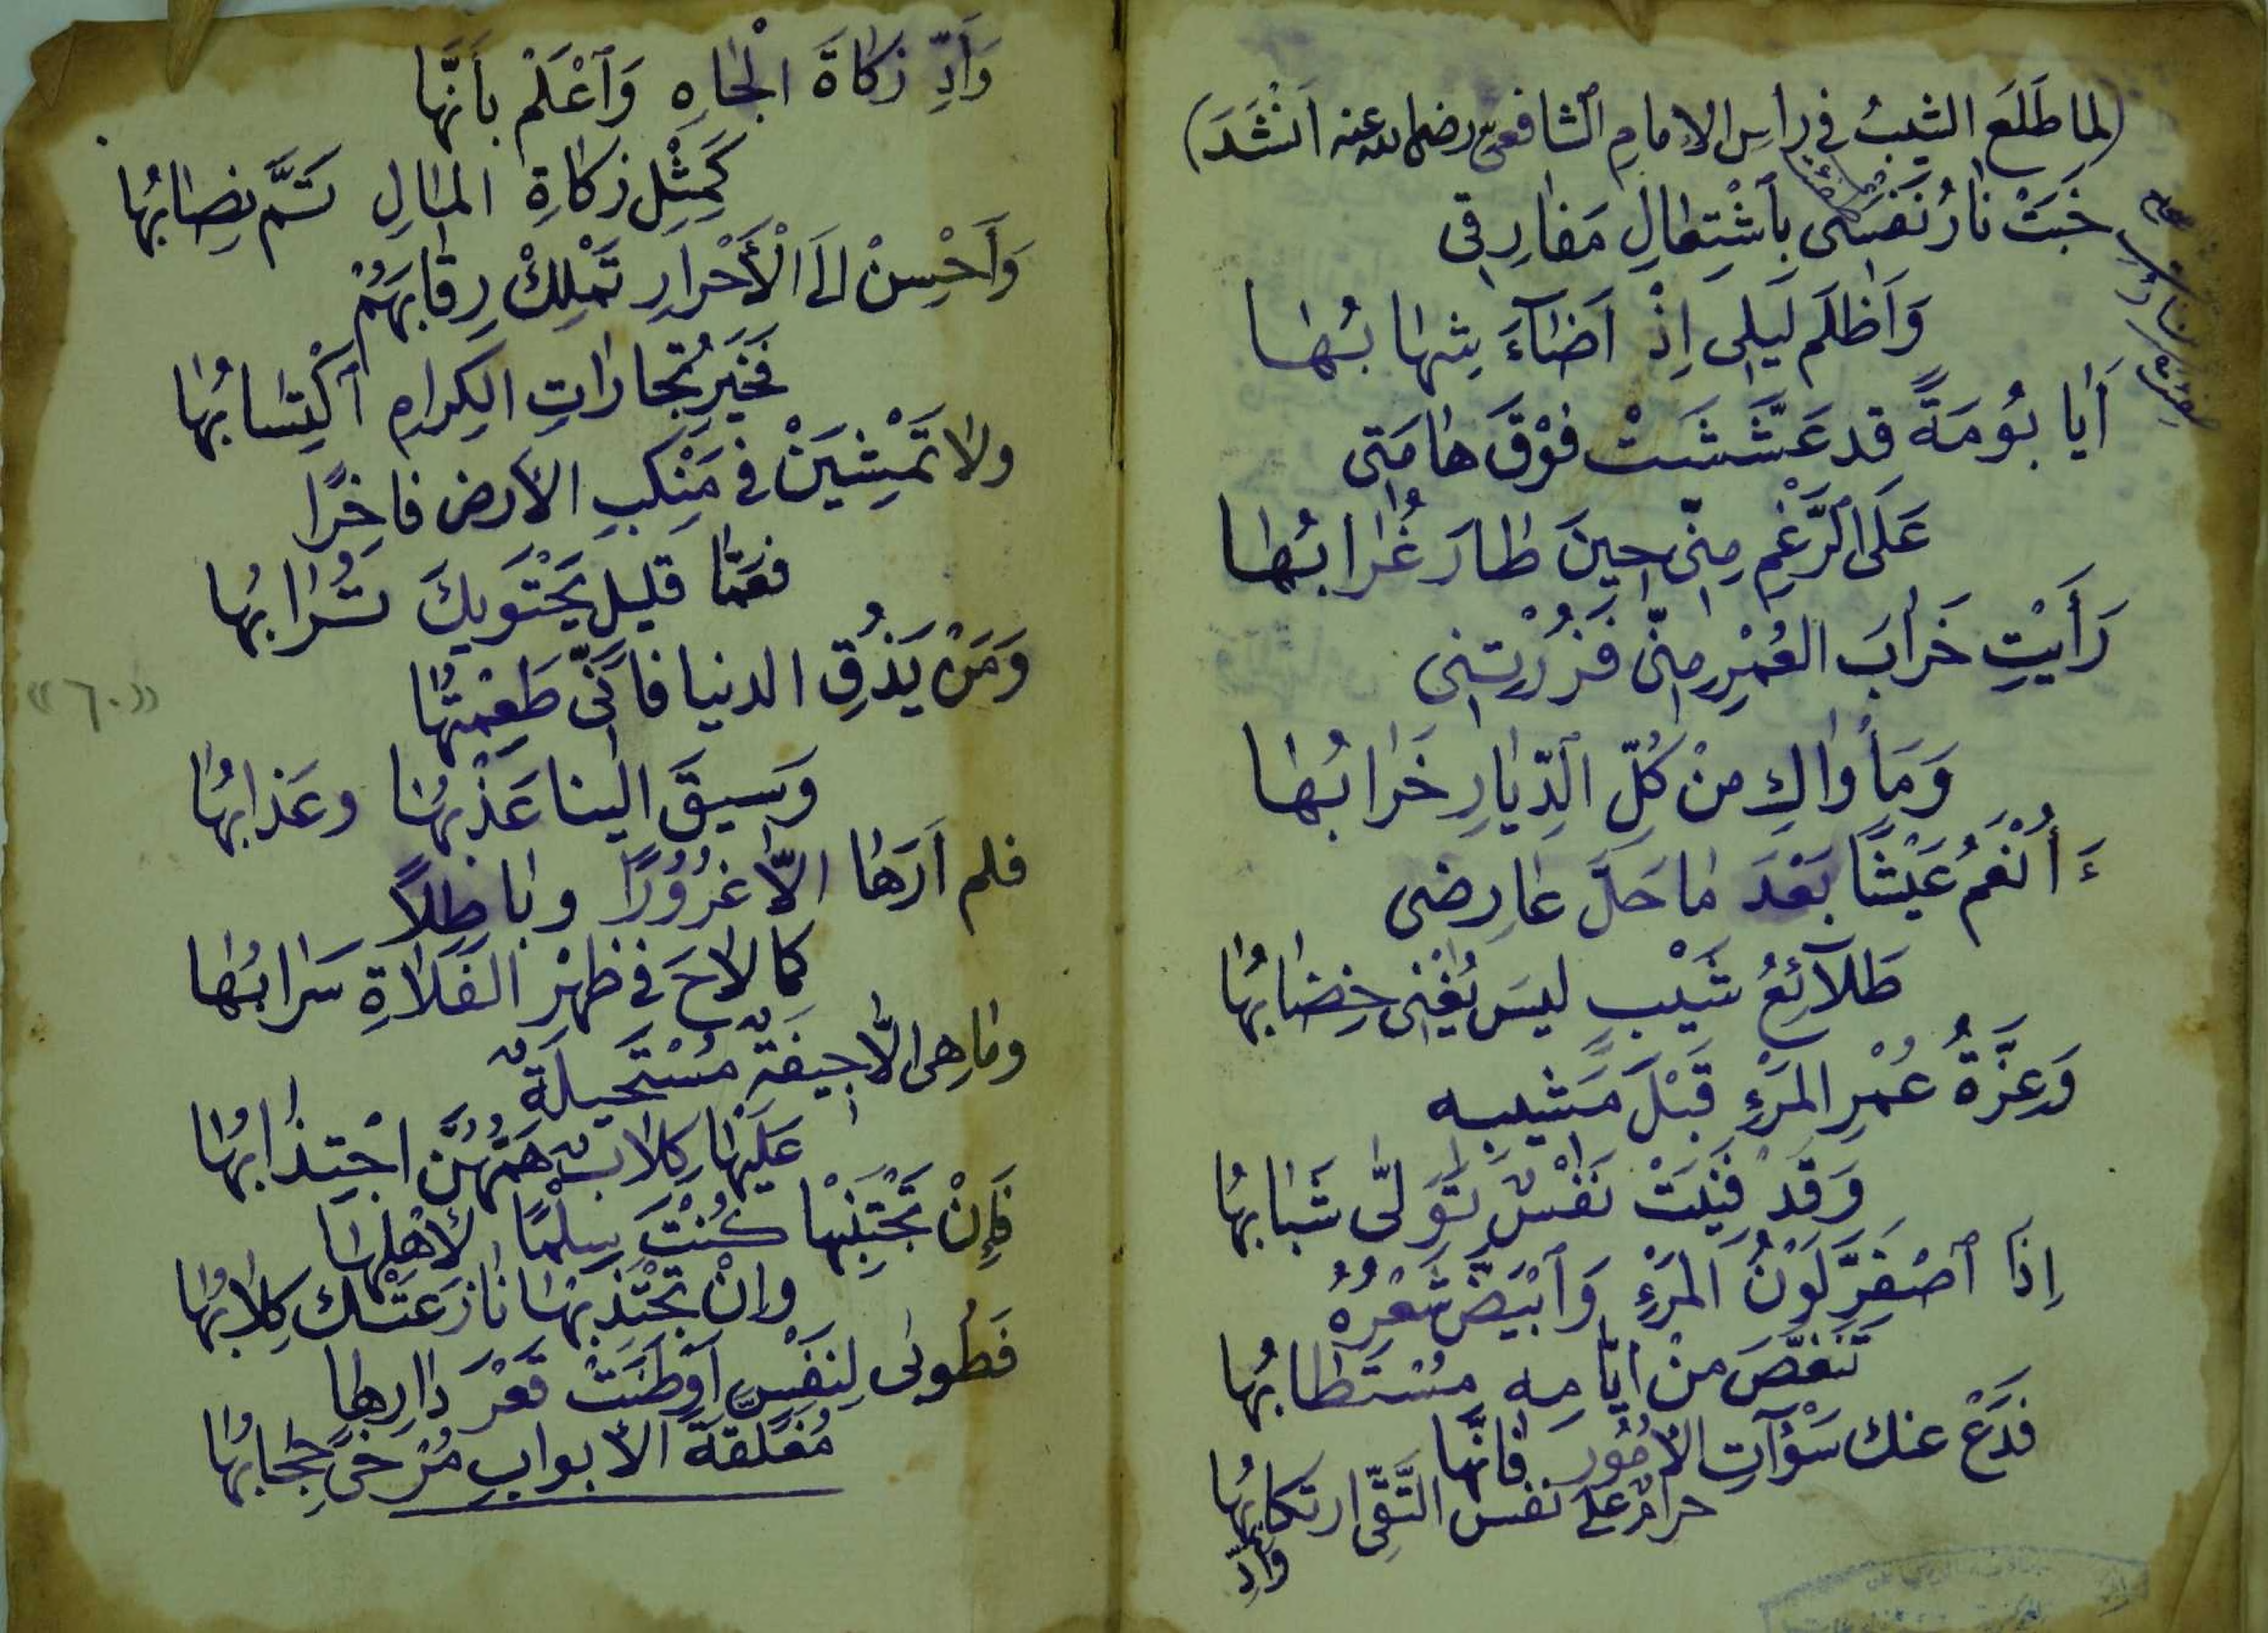 (لما طَلَعَ الشيبُ في راسِ الإمامِ ٱلشافعي رضي الله عنه اَنْشَدَ)
خَبَتْ نارُ نَفسى بِٱشْتِعالِ مَفارِقى
وَاَظلَم لَيلى اِذْ اَضآءَ شِهابُها
أَيا بُومَةً قد عَشَّشَتْ فَوْقَ هامَتى
عَلَى ٱلرَّغْمِ مِنّى حينَ طارَ غُرابُها
رَأَيْتِ خَرابَ العُمْرِ مِنّى فَزُرْتِنى
وَمَأواكِ مِنْ كُلِّ ٱلدِّيارِ خَرابُها
ءَأَنْعَمُ عَيْشًا بَعْدَ ما حَلَّ عارِضى
طَلآئِعُ شَيْبٍ ليسَ يُغْنى خِضابُها
وَعِزَّةُ عُمْرِ المَرْءِ قَبْلَ مَشيبِه
وَقَدْ فَنِيَتْ نَفْسٌ تَوَلّى شَبابُها
اِذَا ٱصْفَرَّ لَوْنُ المَرْءِ وَٱبْيَضَّ شَعْرُهُ
تَنَغَّصَ مِنْ ايّامِه مُسْتَطابُها
فَدَعْ عنك سَوْآتِ الأمُورِ فانّها
حرامٌ على نفس التَّقِىِّ ارتكابُها
وأدِّ
وَأَدِّ زَكاةَ الْجاهِ وَٱعْلَمْ بأنَّها
كَمِثْلِ زكاةِ المالِ تَمَّ نِصابُها
وَأَحْسِنْ الى الْأَحْرارِ تَمْلِكْ رِقابَهُمْ
فَخَيرُ تجاراتِ الكِرامِ ٱكْتِسابُها
ولا تَمْشِيَنْ في مَنْكِبِ الأرض فاخِرًا
فعَمّا قليلٍ يَحْتَويكَ تُرابُها
وَمَنْ يَذُقِ الدنيا فانّى طَعِمْتُها
وَسيقَ الينا عَذْبُها وعَذابُها
«٦٠»
فلم اَرَها الّا غرُورًا وباطِلًا
كما لاحَ في ظَهْرِ الفَلاةِ سَرابُها
وما هى الّا جيفَةٌ مُسْتَحيلَةٌ
عَلَيْها كِلابٌ هَمُّهُنَّ اجْتِذابُها
فَإنْ تَجْتَنِبْها كُنْتَ سِلْمًا لأهْلِها
وإنْ تَجْتَذِبْها نازَعَتْك كِلابُها
فَطُوبى لِنَفْسٍ أَوْطَنَتْ قَعْرَ دارِها
مُغَلّقةَ الأبوابِ مُرْخىً حِجابُها